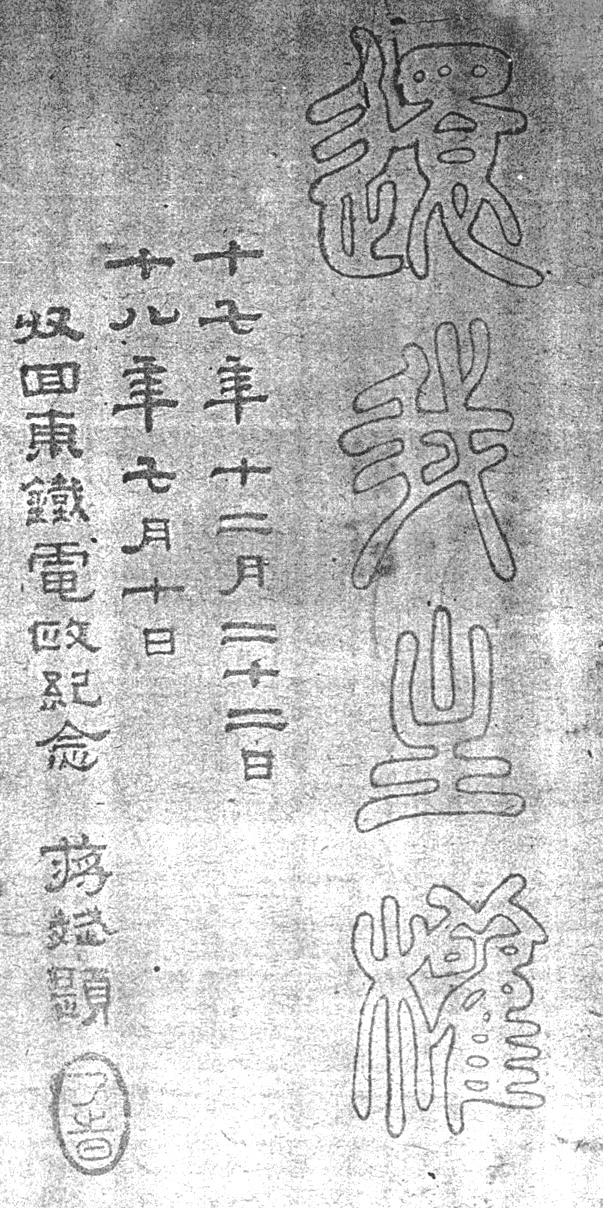 還我主權
十七年十二月二十二日
十八年七月十日
收回東鐵電政紀念 蔣斌題